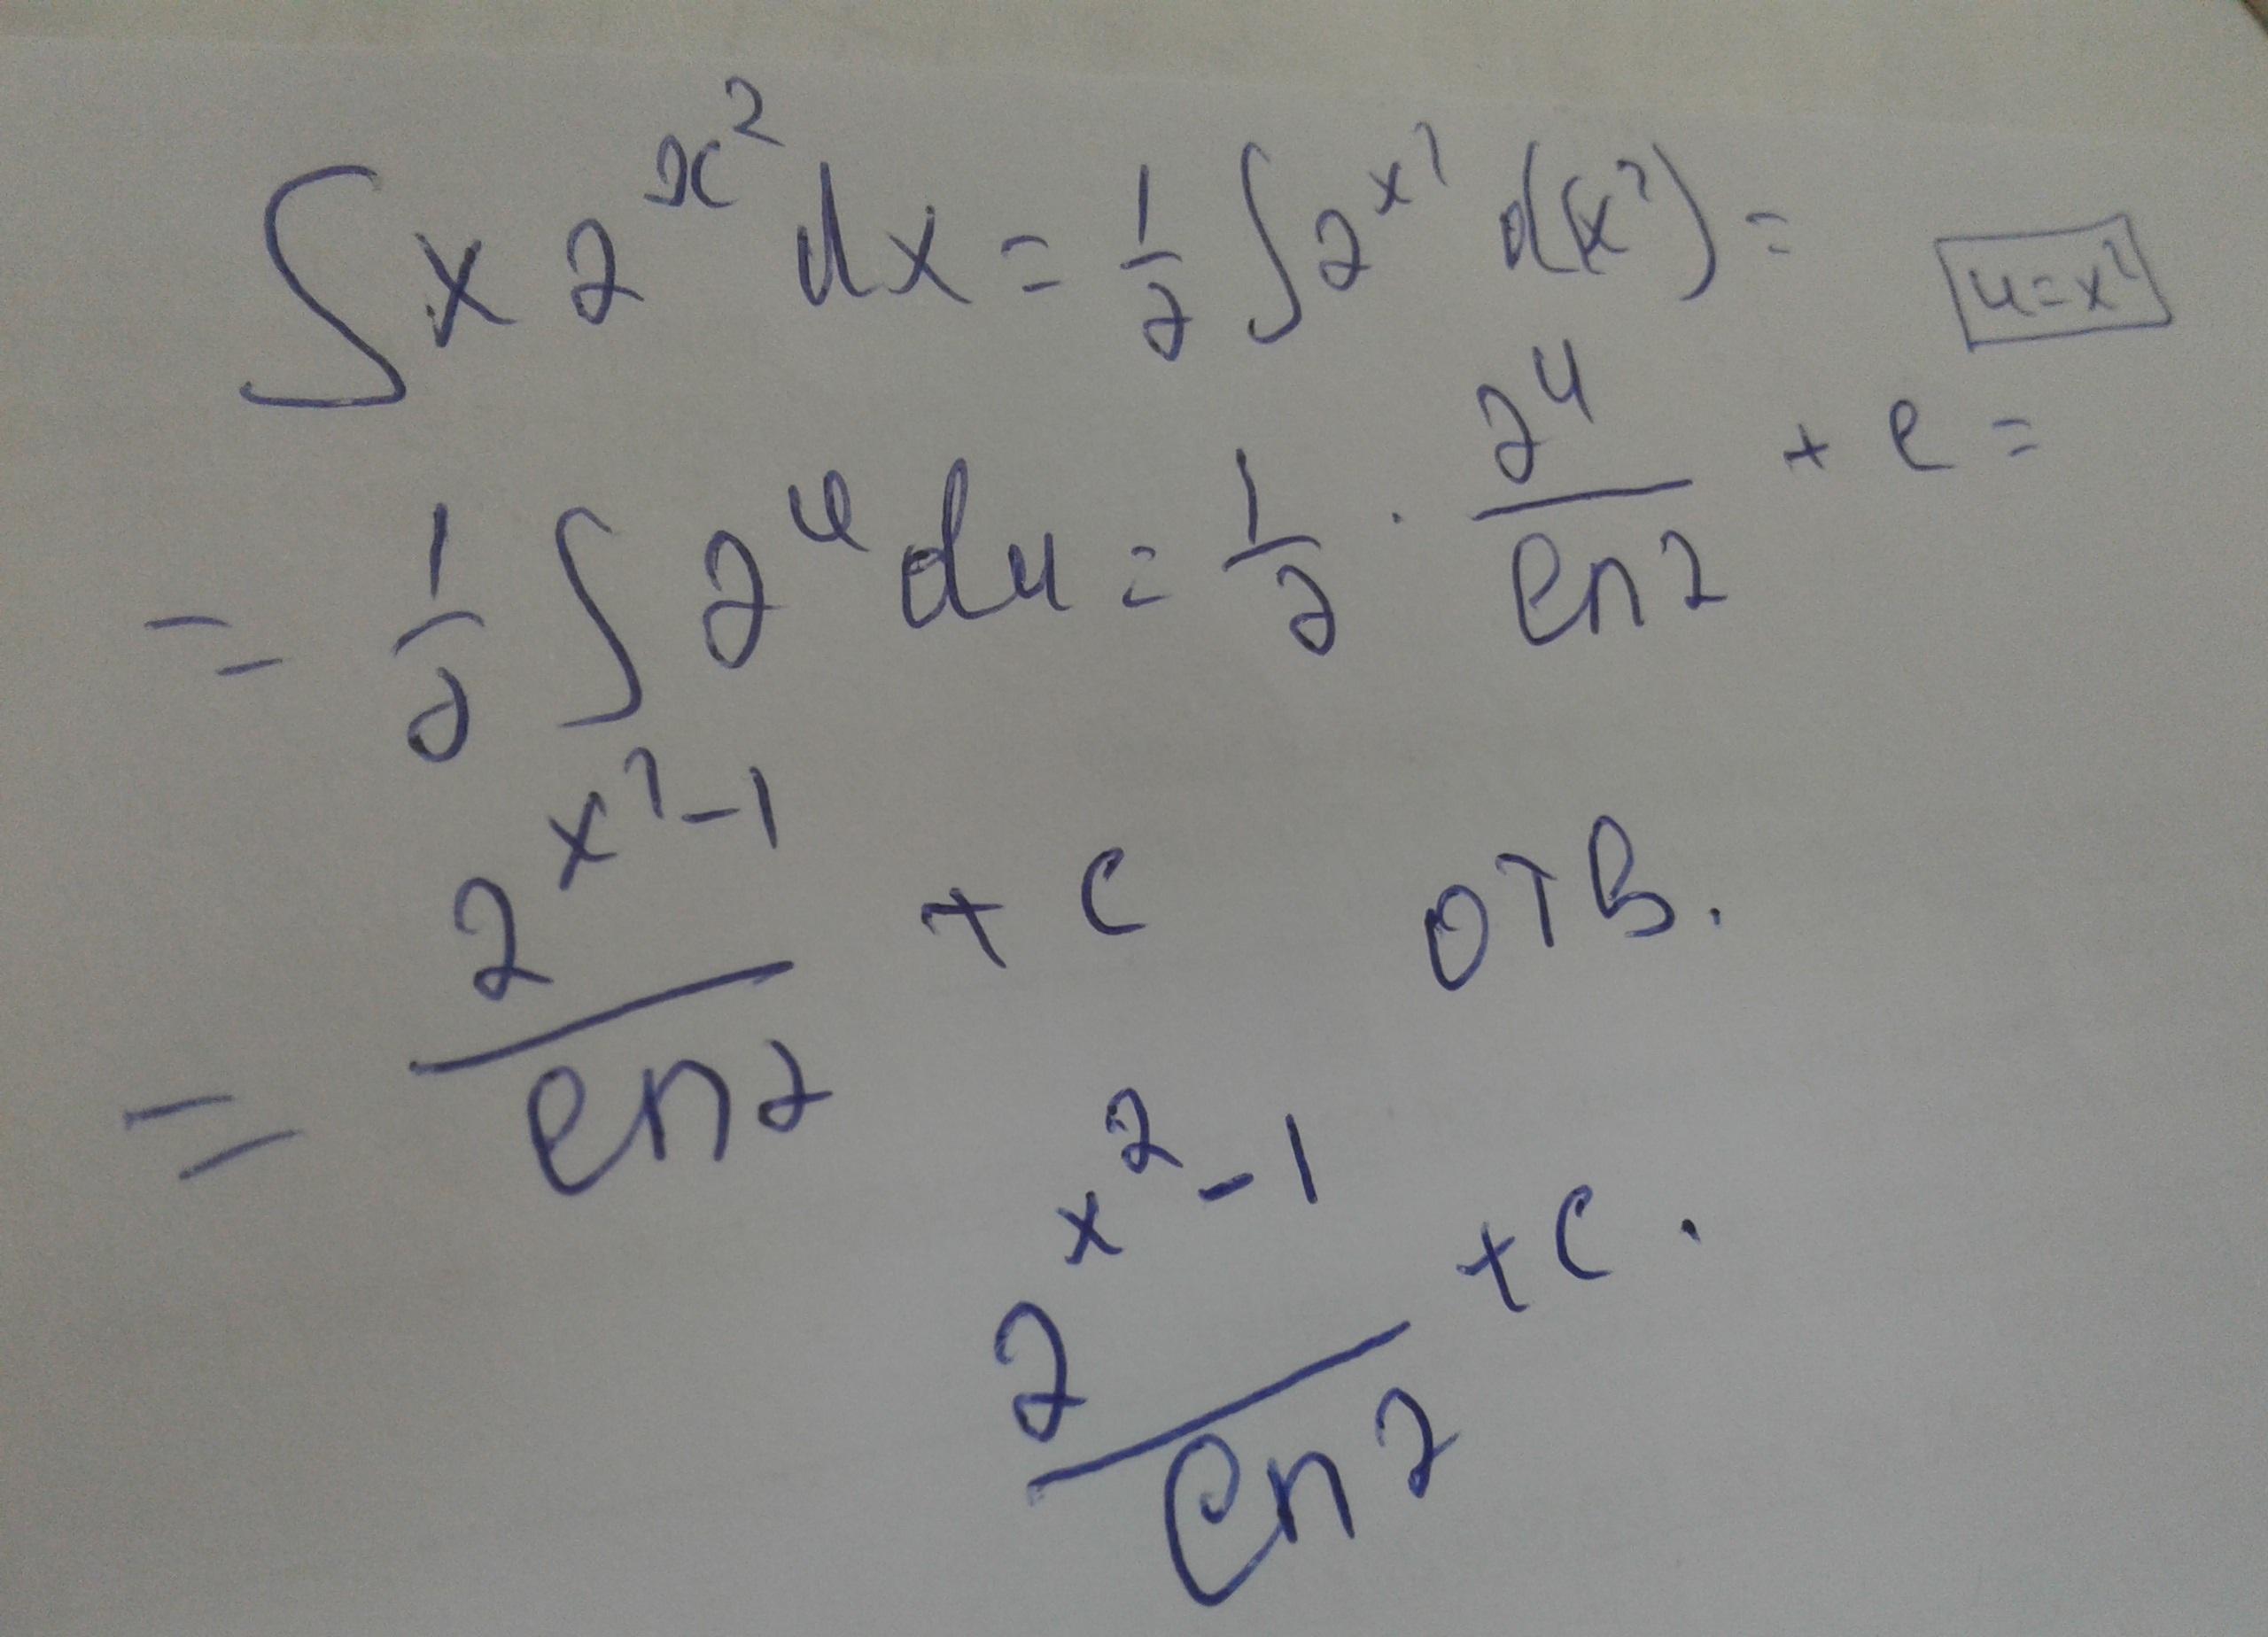 ∫ x 2^{x^2} dx = \frac{1}{2} ∫ 2^{x^2} d(x^2) =
u = x^2
= \frac{1}{2} ∫ 2^u du = \frac{1}{2} · \frac{2^u}{ln 2} + c =
= \frac{2^{x^2-1}}{ln 2} + c отв.
\frac{2^{x^2-1}}{ln 2} + c.